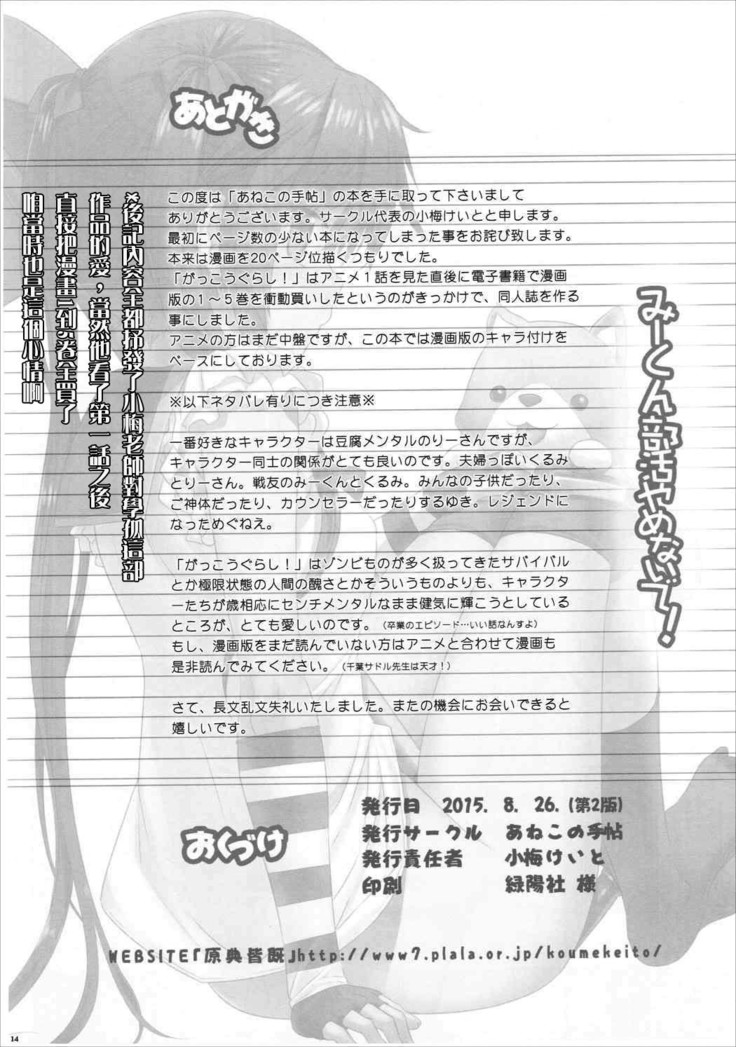 あとがき
この度は「あねこの手帖」の本を手に取って下さいまして
ありがとうございます。サークル代表の小梅けいとと申します。
最初にページ数の少ない本になってしまった事をお詫び致します。
本来は漫画を20ページ位描くつもりでした。
「がっこうぐらし！」はアニメ１話を見た直後に電子書籍で漫画
版の１～５巻を衝動買いしたというのがきっかけで、同人誌を作る
事にしました。
アニメの方はまだ中盤ですが、この本では漫画版のキャラ付けを
ベースにしております。
※以下ネタバレ有りにつき注意※
一番好きなキャラクターは豆腐メンタルのりーさんですが、
キャラクター同士の関係がとても良いのです。夫婦っぽいくるみ
とりーさん。戦友のみーくんとくるみ。みんなの子供だったり、
ご神体だったり、カウンセラーだったりするゆき。レジェンドに
なっためぐねえ。
「がっこうぐらし！」はゾンビものが多く扱ってきたサバイバル
とか極限状態の人間の醜さとかそういうものよりも、キャラクタ
ーたちが歳相応にセンチメンタルなまま健気に輝こうとしている
ところが、とても愛しいのです。（卒業のエピソード…いい話なんすよ）
もし、漫画版をまだ読んでいない方はアニメと合わせて漫画も
是非読んでみてください。（千葉サドル先生は天才！）
さて、長文乱文失礼いたしました。またの機会にお会いできると
嬉しいです。
みーくん部活やめないで！
※後記內容全都抒發了小梅老師對學孤這部
作品的愛，當然他看了第一話之後
直接把漫畫1到5卷全買了
咱當時也是這個心情啊
おくづけ
発行日 2015. 8. 26.（第2版）
発行サークル あねこの手帖
発行責任者 小梅けいと
印刷 緑陽社 様
WEBSITE『原典皆既』http://www7.plala.or.jp/koumekeito/
14